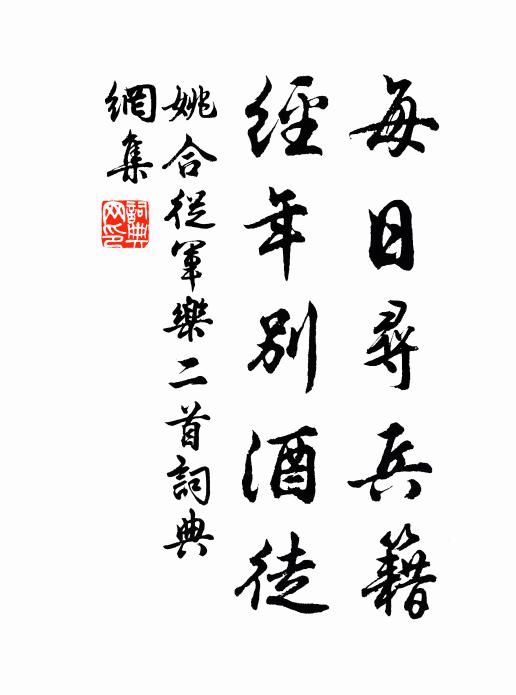 每日尋兵籍
經年別酒徒
姚合從軍樂二首詞典
網集
詞典
網印